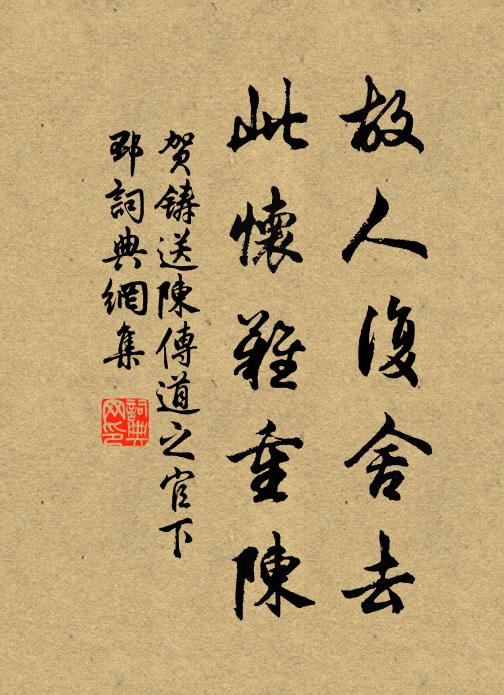 故人復舍去
此懷難重陳
賀鑄送陳傳道之官下
邳詞典網集
詞典
网印